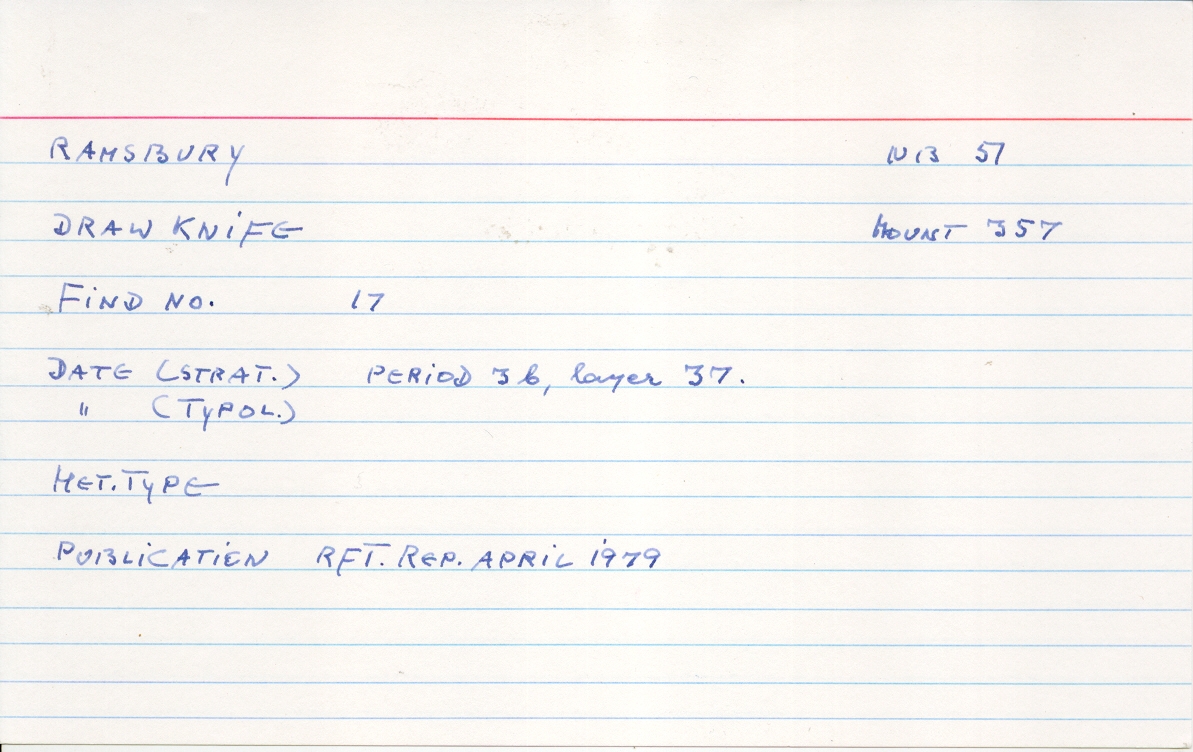 RAMSBURY NB 51
DRAW KNiFE MOUNT 357
FiND NO. 17
DATE (STRAT.) PERiOD 3b, layer 37.
" (TYPOL.)
MET. TYPE
PUBLiCATiEN RFT. REP. APRiL 1979